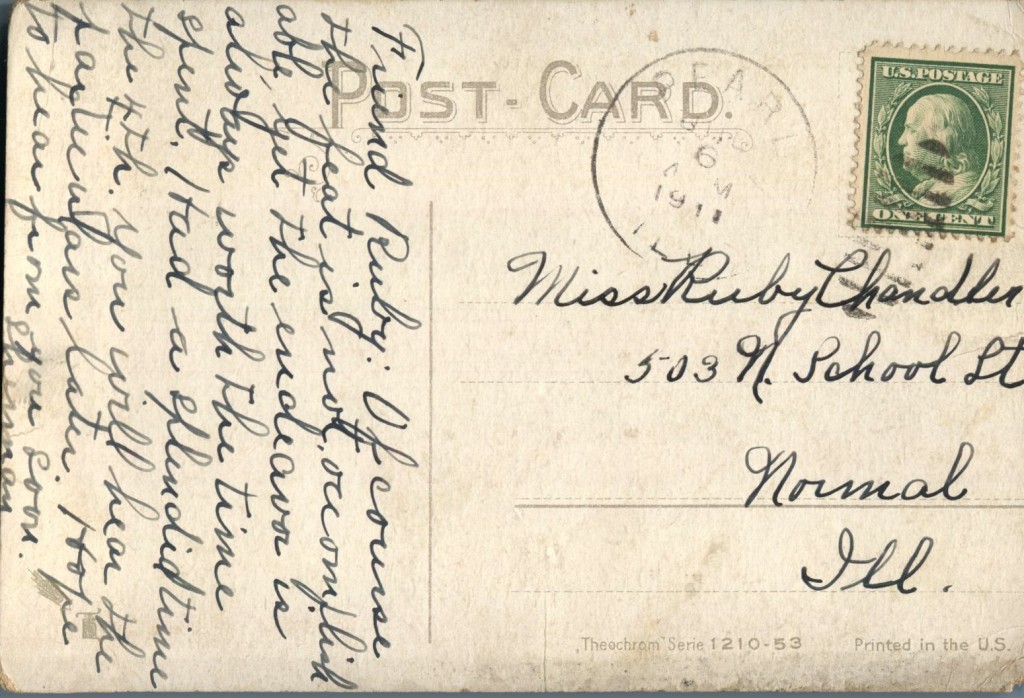 POST-CARD.
PEARL
6
A M
1911
ILL
U.S. POSTAGE
ONE CENT
Friend Ruby: Of course
the feat is not accomplish
able, yet the endeavor is
always worth the time
spent. Had a splendid time
the 4th. You will hear the
particulars later. Hope
to hear from you soon.
Sherman
Miss Ruby Chandler
503 N. School St
Normal
Ill.
"Theochrom" Serie 1210-53
Printed in the U.S.